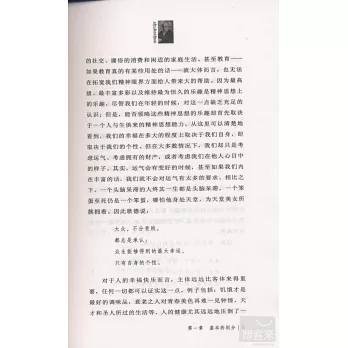 的社交、庸俗的消费和闲适的家庭生活。甚至教育——
如果教育真的有某些用处的话——就大体而言,也无法
在拓宽我们精神眼界方面给人带来大的帮助。因为最高
级、最丰富多彩以及维持最为恒久的乐趣是精神思想上
的乐趣,尽管我们在年轻的时候,对这一点缺乏充足的
认识;但是,能否领略这些精神思想的乐趣却首先取决
于一个人与生俱来的精神思想能力。从这里可以清楚地
看到,我们的幸福在多大的程度上取决于我们自身,即
取决于我们的个性。但在大多数情况下,我们却只是考
虑运气、考虑拥有的财产,或者考虑我们在他人心目中
的样子。其实,运气会有变好的时候,甚至如果我们内
在丰富的话,我们就不会对运气有太多的要求。相比之
下,一个头脑呆滞的人终其一生都是头脑呆滞,一个笨
蛋至死仍是一个笨蛋,哪怕他身处天堂,为天堂美女所
簇拥着。因此歌德说:
大众,不分贵贱,
都总是承认:
众生能够得到的最大幸运,
只有自身的个性。
对于人的幸福快乐而言,主体远远比客体来得重
要,任何一切都可以证实这一点。例子包括:饥饿才是
最好的调味品,衰老之人对青春美色再难一见钟情,天
才和圣人所过的生活等。人的健康尤其远远地压倒了一
第一章 基本的划分